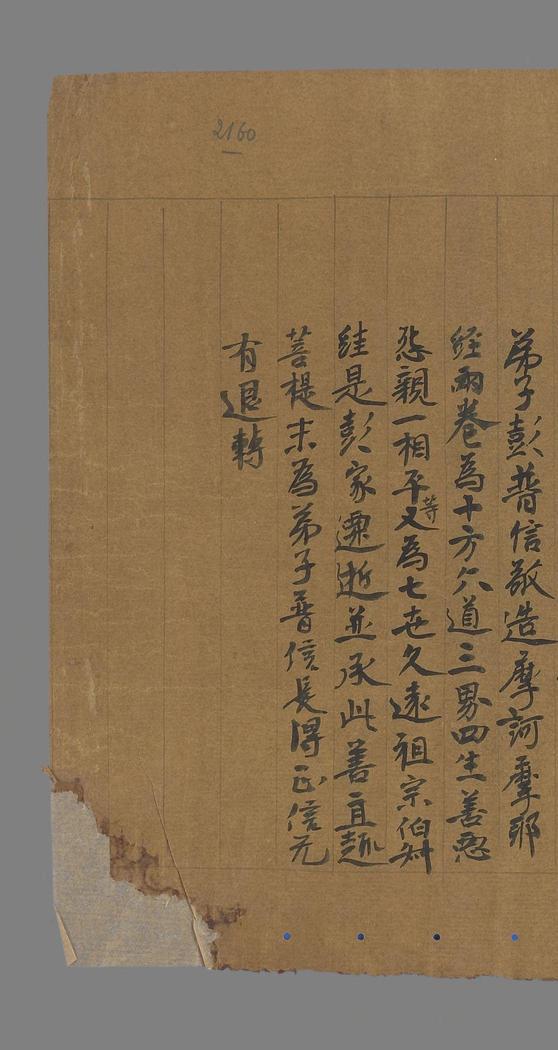 弟子彭普信敬造摩訶摩耶
經兩卷為十方六道三界四生善惡
怨親一相平等又為七世久遠祖宗伯叔
是彭家遷逝並承此善直趣
菩提末為弟子普信長得正信无
有退轉
2160